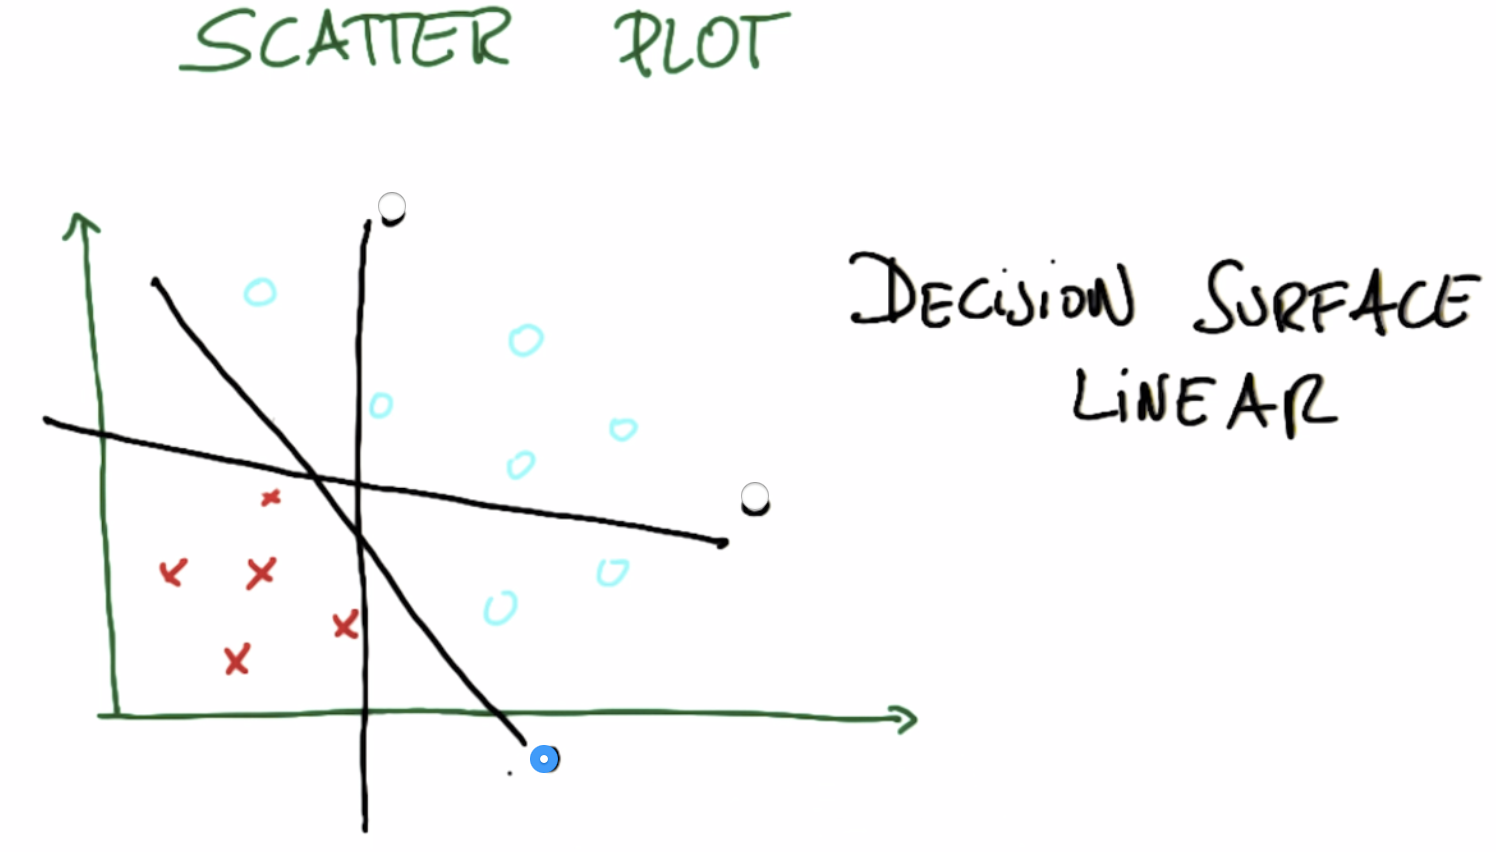 SCATTER PLOT
DECiSiON SURFACE
LiNEAR